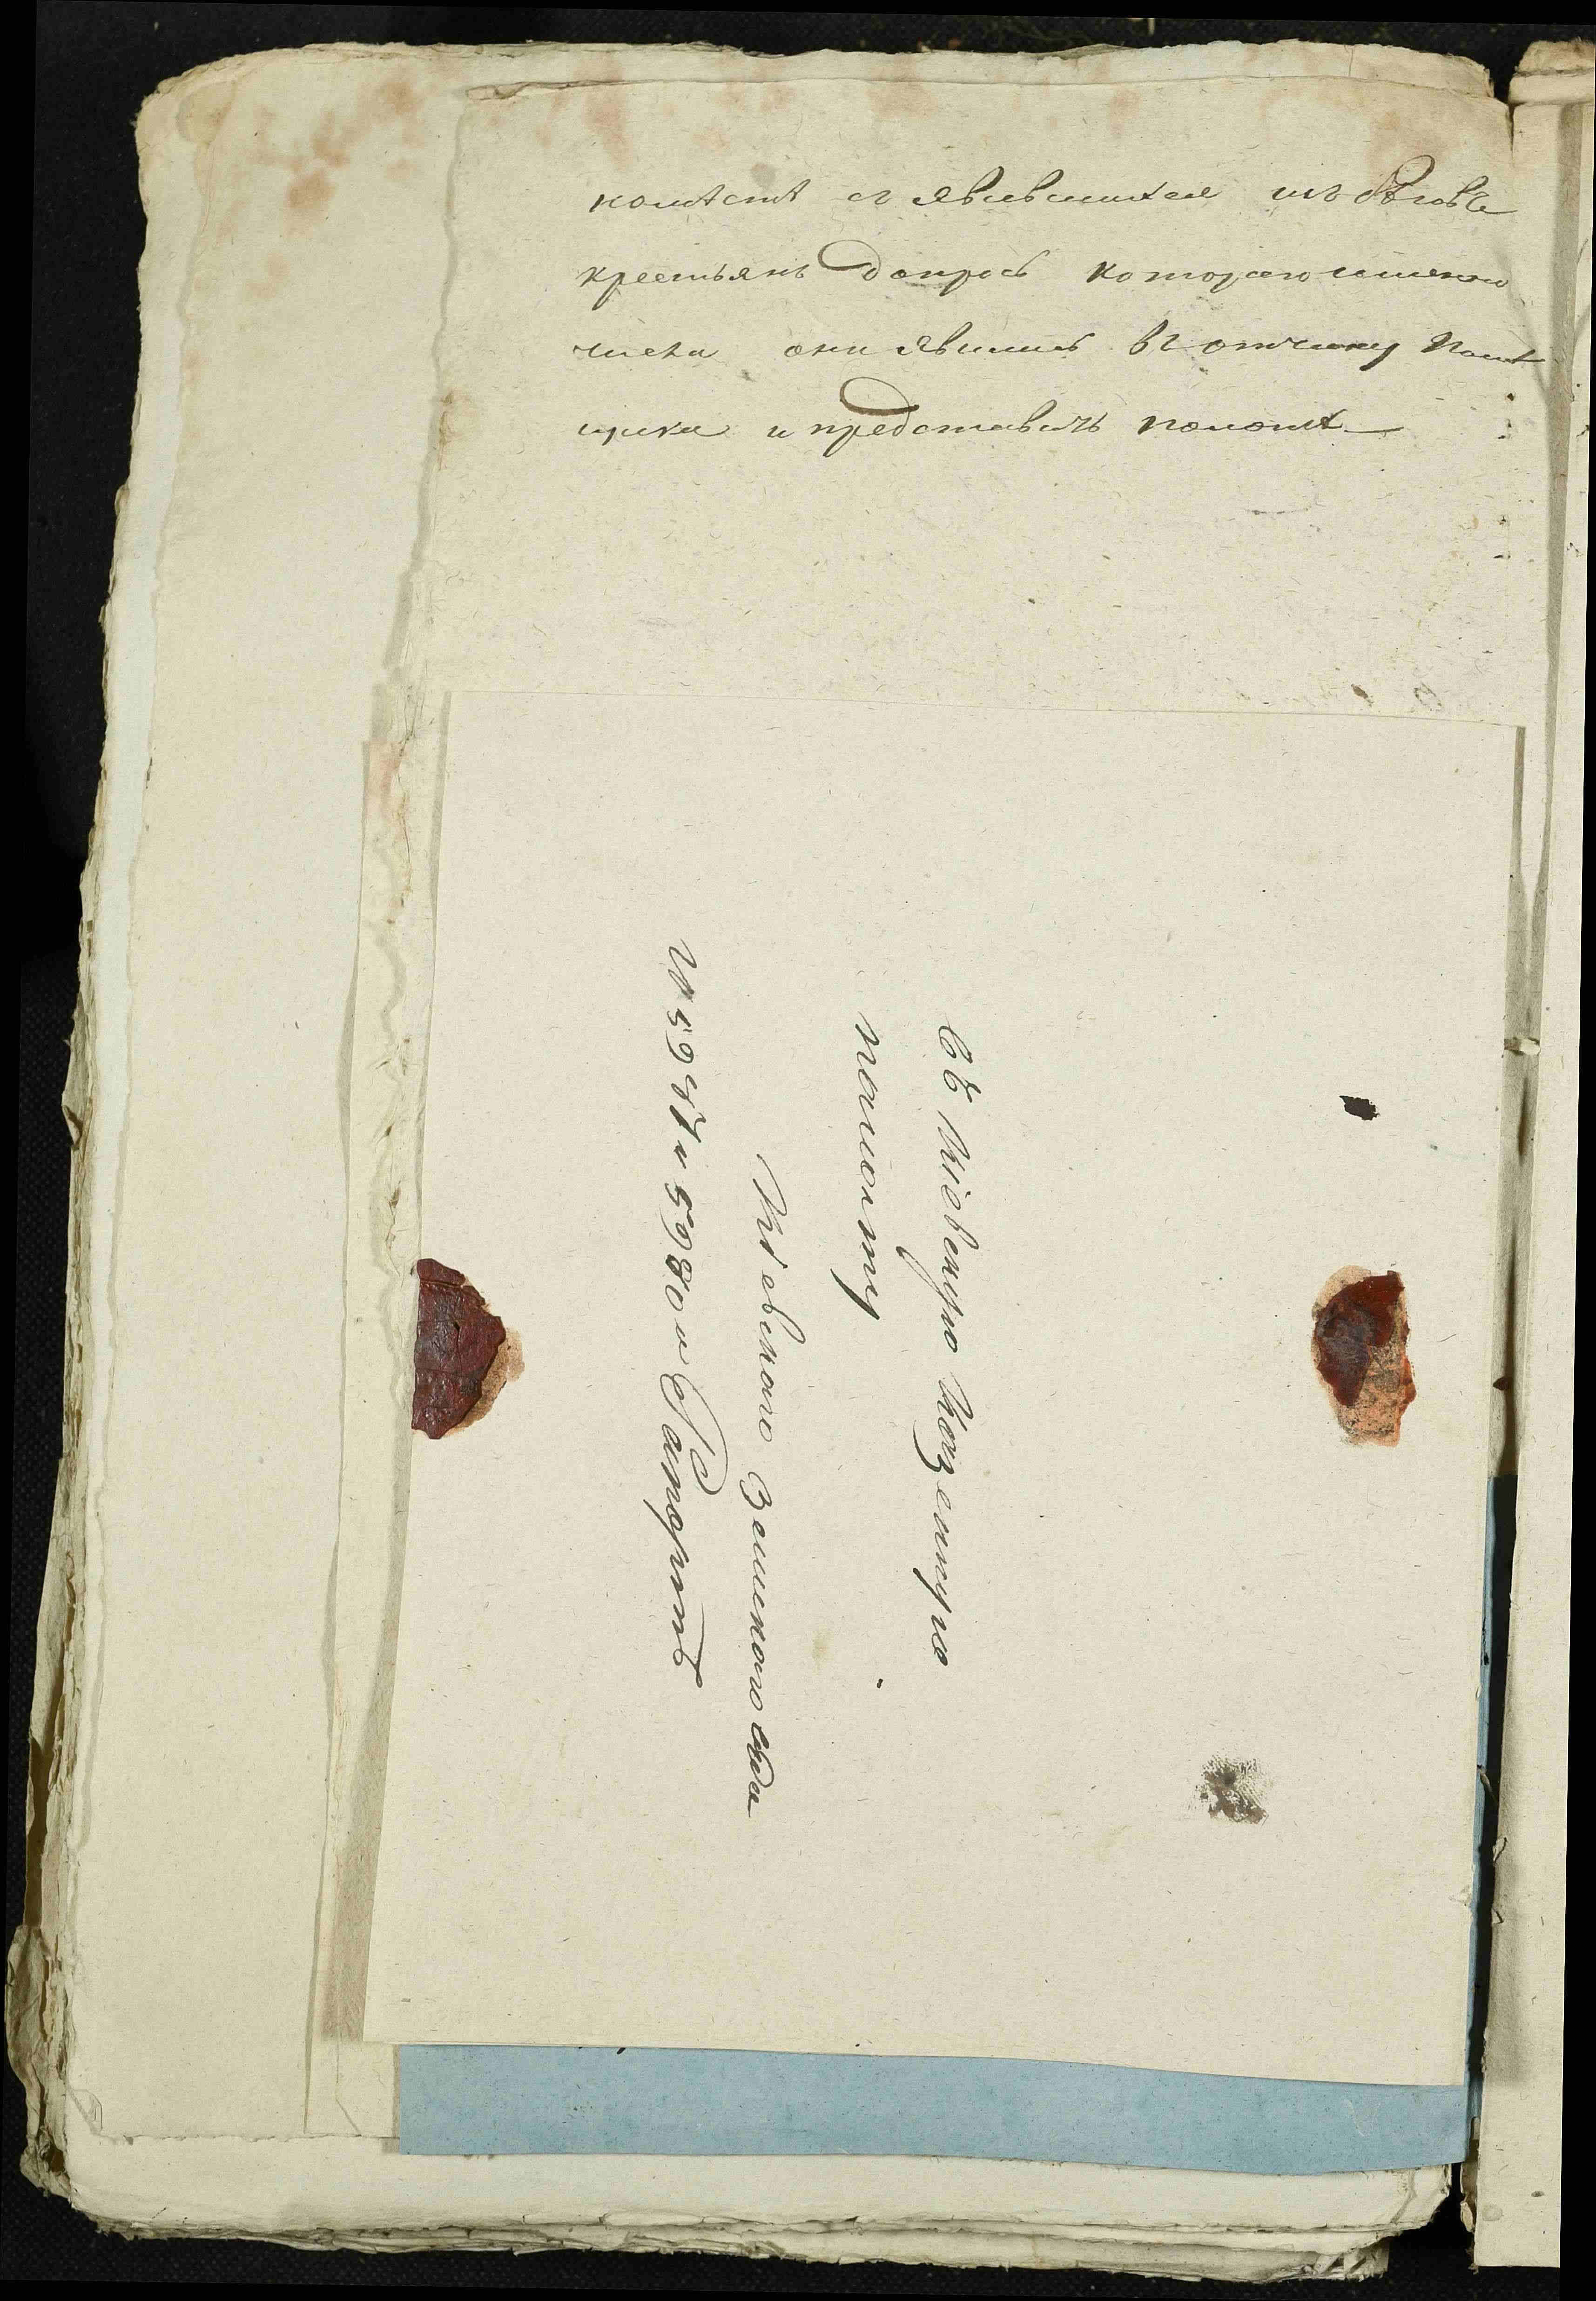 помѣстѣ съ явившихся изъ бѣговъ
крестьянъ допросъ котораго имянно
числа они явились въ отчину помѣ
щика и представить полатѣ
Въ Кіевскую Казенную
полату
Кіевского Земского суда
№ 5947 и 5980 и Рапортъ